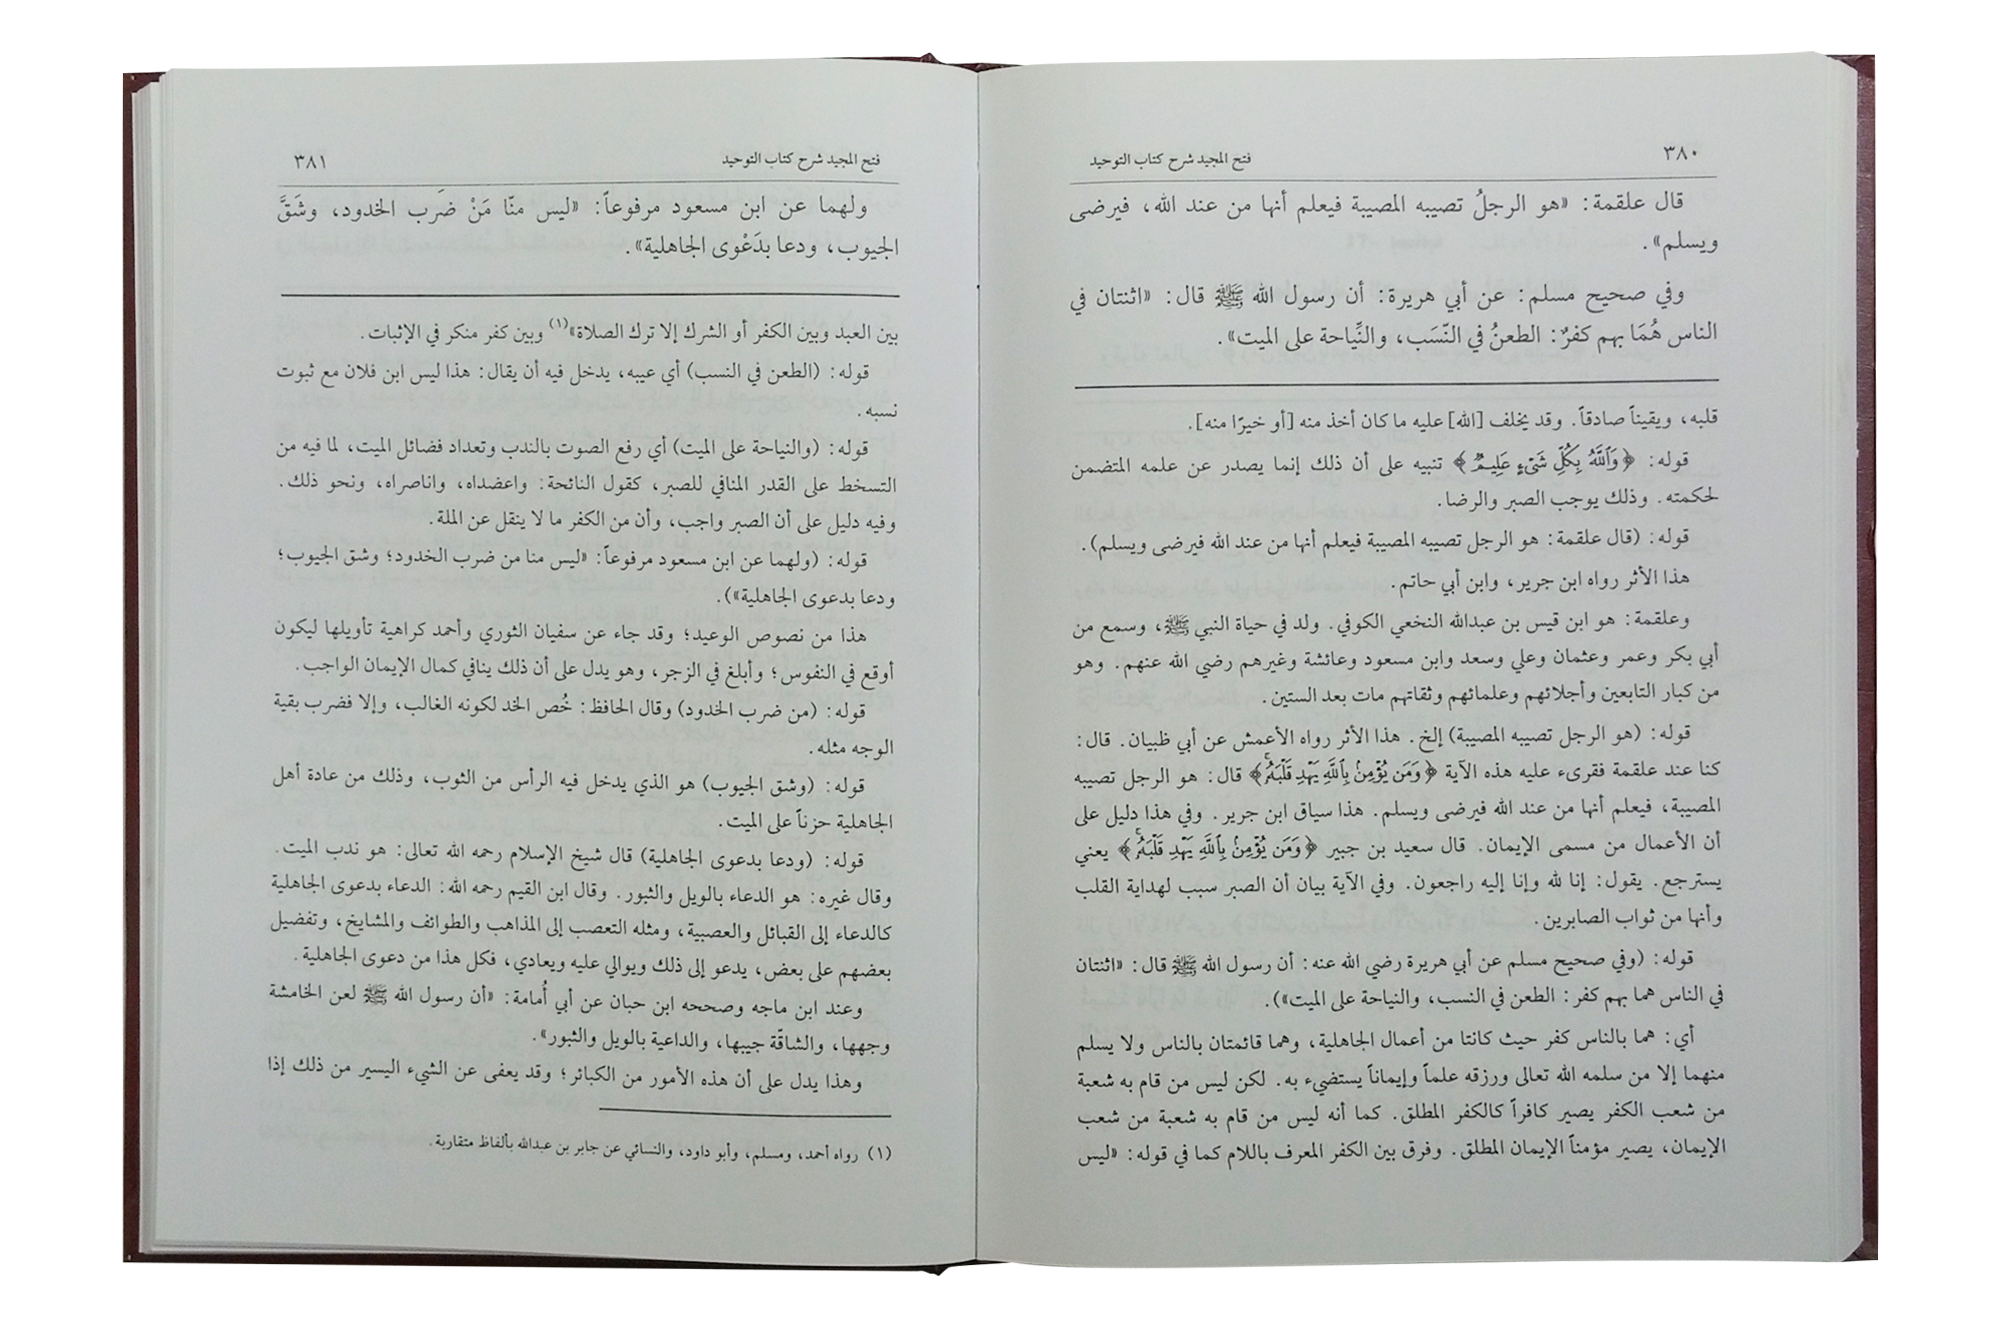 ٣٨٠
فتح المجيد شرح كتاب التوحيد
قال علقمة: «هو الرجلُ تصيبه المصيبة فيعلم أنها من عند الله، فيرضى
ويسلم».
وفي صحيح مسلم: عن أبي هريرة: أن رسول الله ﷺ قال: «اثنتان في
الناس هُمَا بهم كفرٌ: الطعنُ في النّسَب، والنِّياحة على الميت».
قلبه، ويقيناً صادقاً. وقد يخلف [الله] عليه ما كان أخذ منه [أو خيرًا منه].
قوله: ﴿وَٱللَّهُ بِكُلِّ شَىْءٍ عَلِيمٌ﴾ تنبيه على أن ذلك إنما يصدر عن علمه المتضمن
لحكمته. وذلك يوجب الصبر والرضا.
قوله: (قال علقمة: هو الرجل تصيبه المصيبة فيعلم أنها من عند الله فيرضى ويسلم).
هذا الأثر رواه ابن جرير، وابن أبي حاتم.
وعلقمة: هو ابن قيس بن عبدالله النخعي الكوفي. ولد في حياة النبي ﷺ، وسمع من
أبي بكر وعمر وعثمان وعلي وسعد وابن مسعود وعائشة وغيرهم رضي الله عنهم. وهو
من كبار التابعين وأجلائهم وعلمائهم وثقاتهم مات بعد الستين.
قوله: (هو الرجل تصيبه المصيبة) إلخ. هذا الأثر رواه الأعمش عن أبي ظبيان. قال:
كنا عند علقمة فقرىء عليه هذه الآية ﴿وَمَن يُؤْمِنۢ بِٱللَّهِ يَهْدِ قَلْبَهُۥ﴾ قال: هو الرجل تصيبه
المصيبة، فيعلم أنها من عند الله فيرضى ويسلم. هذا سياق ابن جرير. وفي هذا دليل على
أن الأعمال من مسمى الإيمان. قال سعيد بن جبير ﴿وَمَن يُؤْمِنۢ بِٱللَّهِ يَهْدِ قَلْبَهُۥ﴾ يعني
يسترجع. يقول: إنا لله وإنا إليه راجعون. وفي الآية بيان أن الصبر سبب لهداية القلب
وأنها من ثواب الصابرين.
قوله: (وفي صحيح مسلم عن أبي هريرة رضي الله عنه: أن رسول الله ﷺ قال: «اثنتان
في الناس هما بهم كفر: الطعن في النسب، والنياحة على الميت»).
أي: هما بالناس كفر حيث كانتا من أعمال الجاهلية، وهما قائمتان بالناس ولا يسلم
منهما إلا من سلمه الله تعالى ورزقه علماً وإيماناً يستضيء به. لكن ليس من قام به شعبة
من شعب الكفر يصير كافراً كالكفر المطلق. كما أنه ليس من قام به شعبة من شعب
الإيمان، يصير مؤمناً الإيمان المطلق. وفرق بين الكفر المعرف باللام كما في قوله: «ليس
فتح المجيد شرح كتاب التوحيد
٣٨١
ولهما عن ابن مسعود مرفوعاً: «ليس منّا مَنْ ضَرب الخدود، وشَقَّ
الجيوب، ودعا بدَعْوى الجاهلية».
بين العبد وبين الكفر أو الشرك إلا ترك الصلاة»(١) وبين كفر منكر في الإثبات.
قوله: (الطعن في النسب) أي عيبه، يدخل فيه أن يقال: هذا ليس ابن فلان مع ثبوت
نسبه.
قوله: (والنياحة على الميت) أي رفع الصوت بالندب وتعداد فضائل الميت، لما فيه من
التسخط على القدر المنافي للصبر، كقول النائحة: واعضداه، واناصراه، ونحو ذلك.
وفيه دليل على أن الصبر واجب، وأن من الكفر ما لا ينقل عن الملة.
قوله: (ولهما عن ابن مسعود مرفوعاً: «ليس منا من ضرب الخدود؛ وشق الجيوب؛
ودعا بدعوى الجاهلية»).
هذا من نصوص الوعيد؛ وقد جاء عن سفيان الثوري وأحمد كراهية تأويلها ليكون
أوقع في النفوس؛ وأبلغ في الزجر، وهو يدل على أن ذلك ينافي كمال الإيمان الواجب.
قوله: (من ضرب الخدود) وقال الحافظ: خُص الخد لكونه الغالب، وإلا فضرب بقية
الوجه مثله.
قوله: (وشق الجيوب) هو الذي يدخل فيه الرأس من الثوب، وذلك من عادة أهل
الجاهلية حزناً على الميت.
قوله: (ودعا بدعوى الجاهلية) قال شيخ الإسلام رحمه الله تعالى: هو ندب الميت.
وقال غيره: هو الدعاء بالويل والثبور. وقال ابن القيم رحمه الله: الدعاء بدعوى الجاهلية
كالدعاء إلى القبائل والعصبية، ومثله التعصب إلى المذاهب والطوائف والمشايخ، وتفضيل
بعضهم على بعض، يدعو إلى ذلك ويوالي عليه ويعادي، فكل هذا من دعوى الجاهلية.
وعند ابن ماجه وصححه ابن حبان عن أبي أُمامة: «أن رسول الله ﷺ لعن الخامشة
وجهها، والشاقّة جيبها، والداعية بالويل والثبور».
وهذا يدل على أن هذه الأمور من الكبائر؛ وقد يعفى عن الشيء اليسير من ذلك إذا
(١) رواه أحمد، ومسلم، وأبو داود، والنسائي عن جابر بن عبدالله بألفاظ متقاربة.